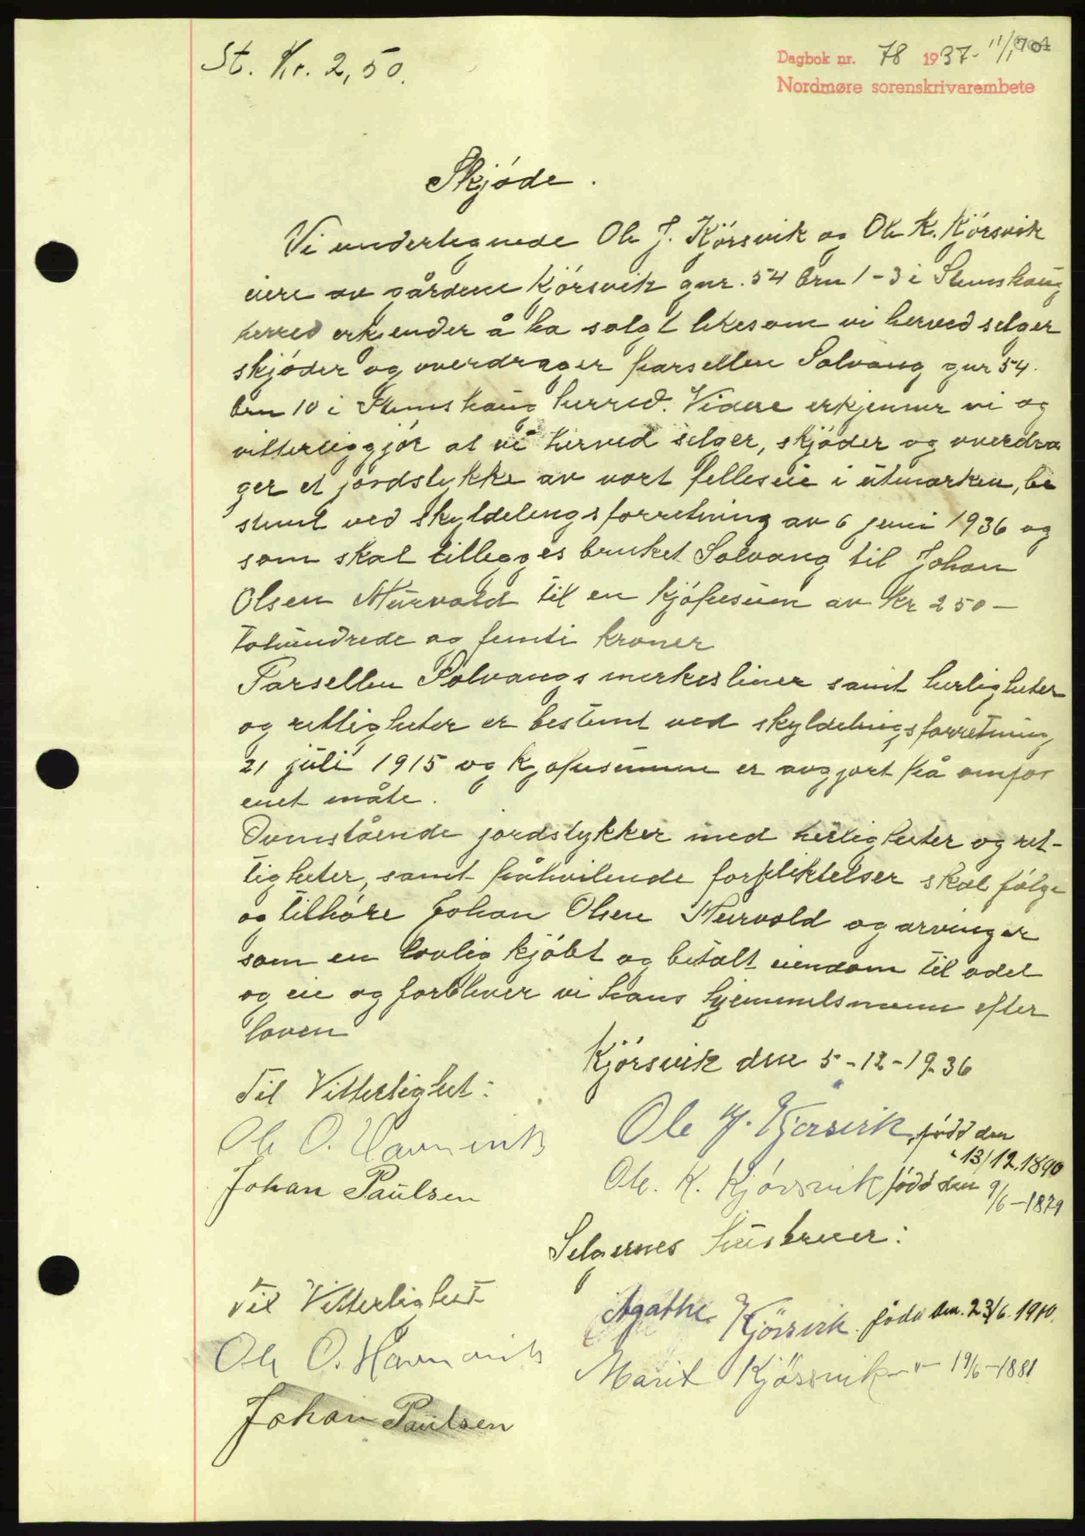 St. Kr. 2,50.
Dagbok nr. 78 1937 - 11/1
Nordmøre sorenskrivarembete
Skjøde.
Vi undertegnede Ole J. Kjørsvik og Ole K. Kjørsvik
eiere av gårdene Kjørsvik gnr. 54 brn 1-3 i Stemshaug
herred erkjender å ha solgt likesom vi herved selger
skjøder og overdrager parsellen Solvang gnr 54.
brn 10 i Stemshaug herred. Videre erkjenner vi og
vitterliggjør at vi herved selger, skjøder og overdra
ger et jordstykke av vort felleseie i utmarken, be
stemt ved skyldelingsforretning av 6 juni 1936 og
som skal tillegges bruket Solvang til Johan
Olsen Murvold til en kjøpesum av Kr 250 -
tohundrede og femti kroner
Parsellen Solvangs merkesliner samt herligheter
og rettigheter er bestemt ved skyldelingsforretning
21 juli 1915 og kjøpesummen er avgjort på omfor
enet måte.
Ovenstående jordstykker med herligheter og ret-
tigheter, samt påhvilende forpliktelser skal følge
og tilhøre Johan Olsen Murvold og arvinger
som en lovlig kjøbt og betalt eiendom til odel
og eie og forbliver vi hans hjemmelsmenn efter
loven
Kjørsvik den 5-12-1936
Til Vitterlighet:
Ole J. Kjørsvik, født den
13/12.1890
Ole O. Havnvik
Ole. K. Kjørsvik født den 9/6-1879
Johan Paulsen
Selgernes hustruer:
Til Vitterlighet
Agathe Kjörsvik. född den. 23/6. 1910.
Ole O. Havnvik
Marit Kjörsvik -"- 19/6-1881
Johan Paulsen